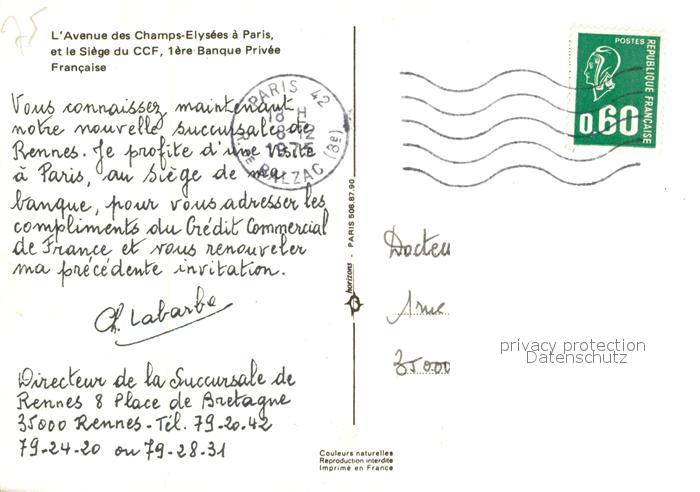 75
L'Avenue des Champs-Elysées à Paris,
et le Siège du CCF, 1ère Banque Privée
Française
Vous connaissez maintenant
notre nouvelle succursale de
Rennes. Je profite d'une visite
à Paris, au Siège de ma
banque, pour vous adresser les
compliments du Crédit Commercial
de France et vous renouveler
ma précédente invitation.
Ch. Labarbe
Directeur de la Succursale de
Rennes 8 Place de Bretagne
35000 Rennes - Tél. 79-20.42
79-24-20 ou 79-28-31
PARIS 42
18 H
8-12
1975
BALZAC (8e)
POSTES
REPUBLIQUE FRANÇAISE
0,60
horizons - PARIS 508.87.90
Docteu
1 rue
35000
privacy protection
Datenschutz
Couleurs naturelles
Reproduction interdite
Imprimé en France